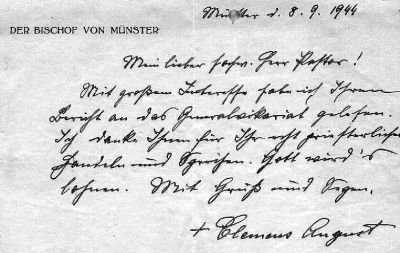 Münster d. 8. 9. 1944
DER BISCHOF VON MÜNSTER
Mein lieber hochw. Herr Pastor!
Mit großem Interesse habe ich Ihren
Bericht an das Generalvikariat gelesen.
Ich danke Ihnen für Ihr echt priesterliches
Handeln und Sprechen. Gott wird's
lohnen. Mit Gruß und Segen.
+ Clemens August